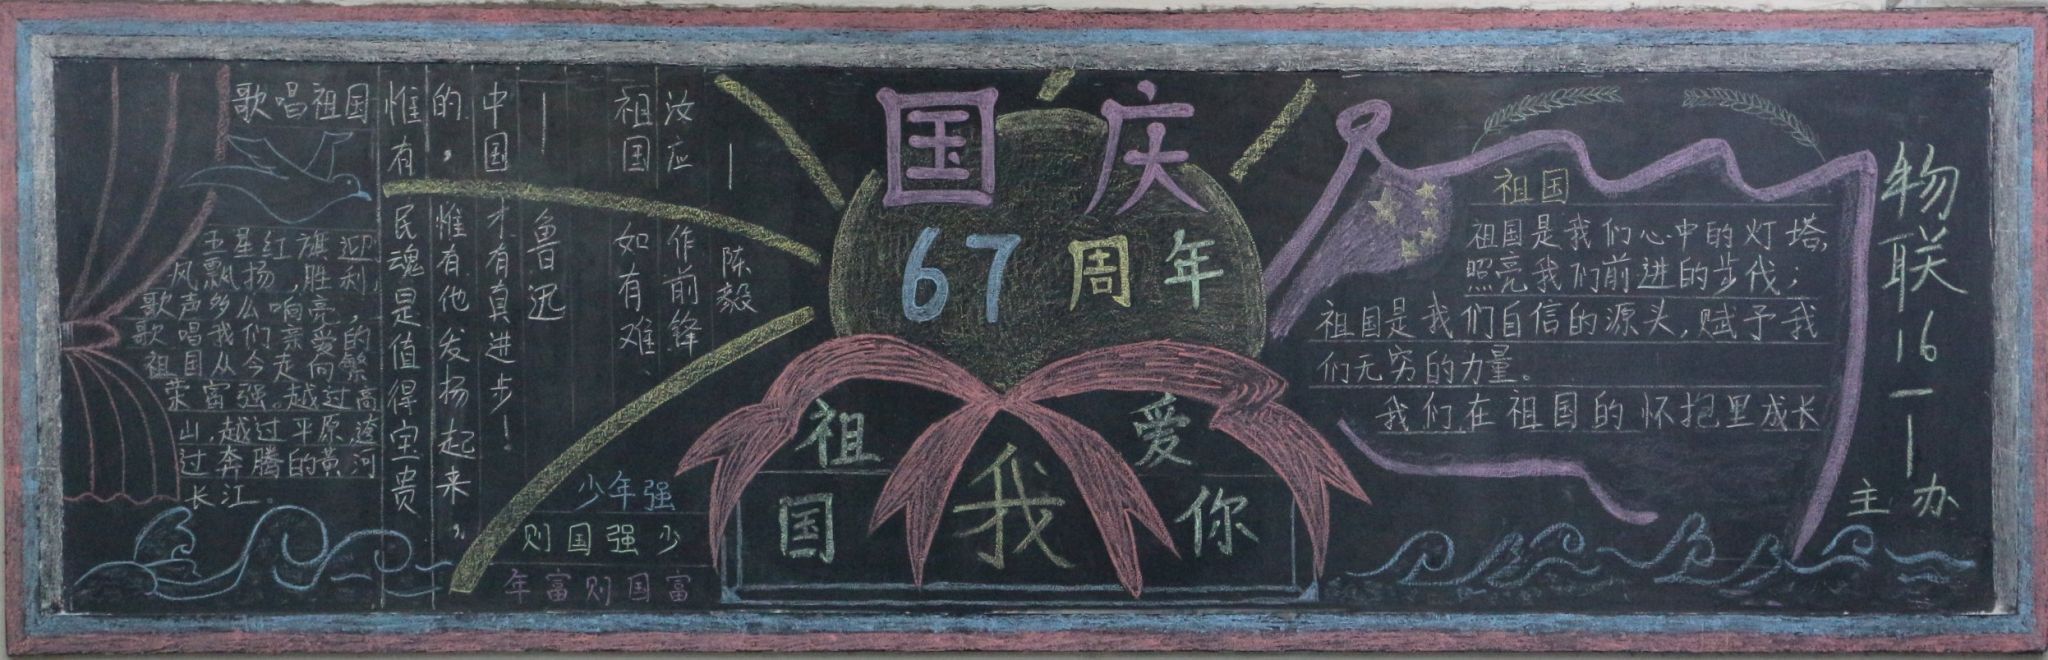 歌唱祖国
五星红旗迎
风飘扬,胜利
歌声多么响亮,
歌唱我们亲爱的
祖国从今走向繁
荣富强。越过高
山,越过平原,跨
过奔腾的黄河
长江。
惟有民魂是值得宝贵
的,惟有他发扬起来,
中国才有真进步!
——鲁迅
祖国如有难,
汝应作前锋
——陈毅
少年强
则国强少
年富则国富
国庆
67周年
祖国我爱你
祖国
祖国是我们心中的灯塔,
照亮我们前进的步伐;
祖国是我们自信的源头,赋予我
们无穷的力量。
我们在祖国的怀抱里成长
物联16一1
主办